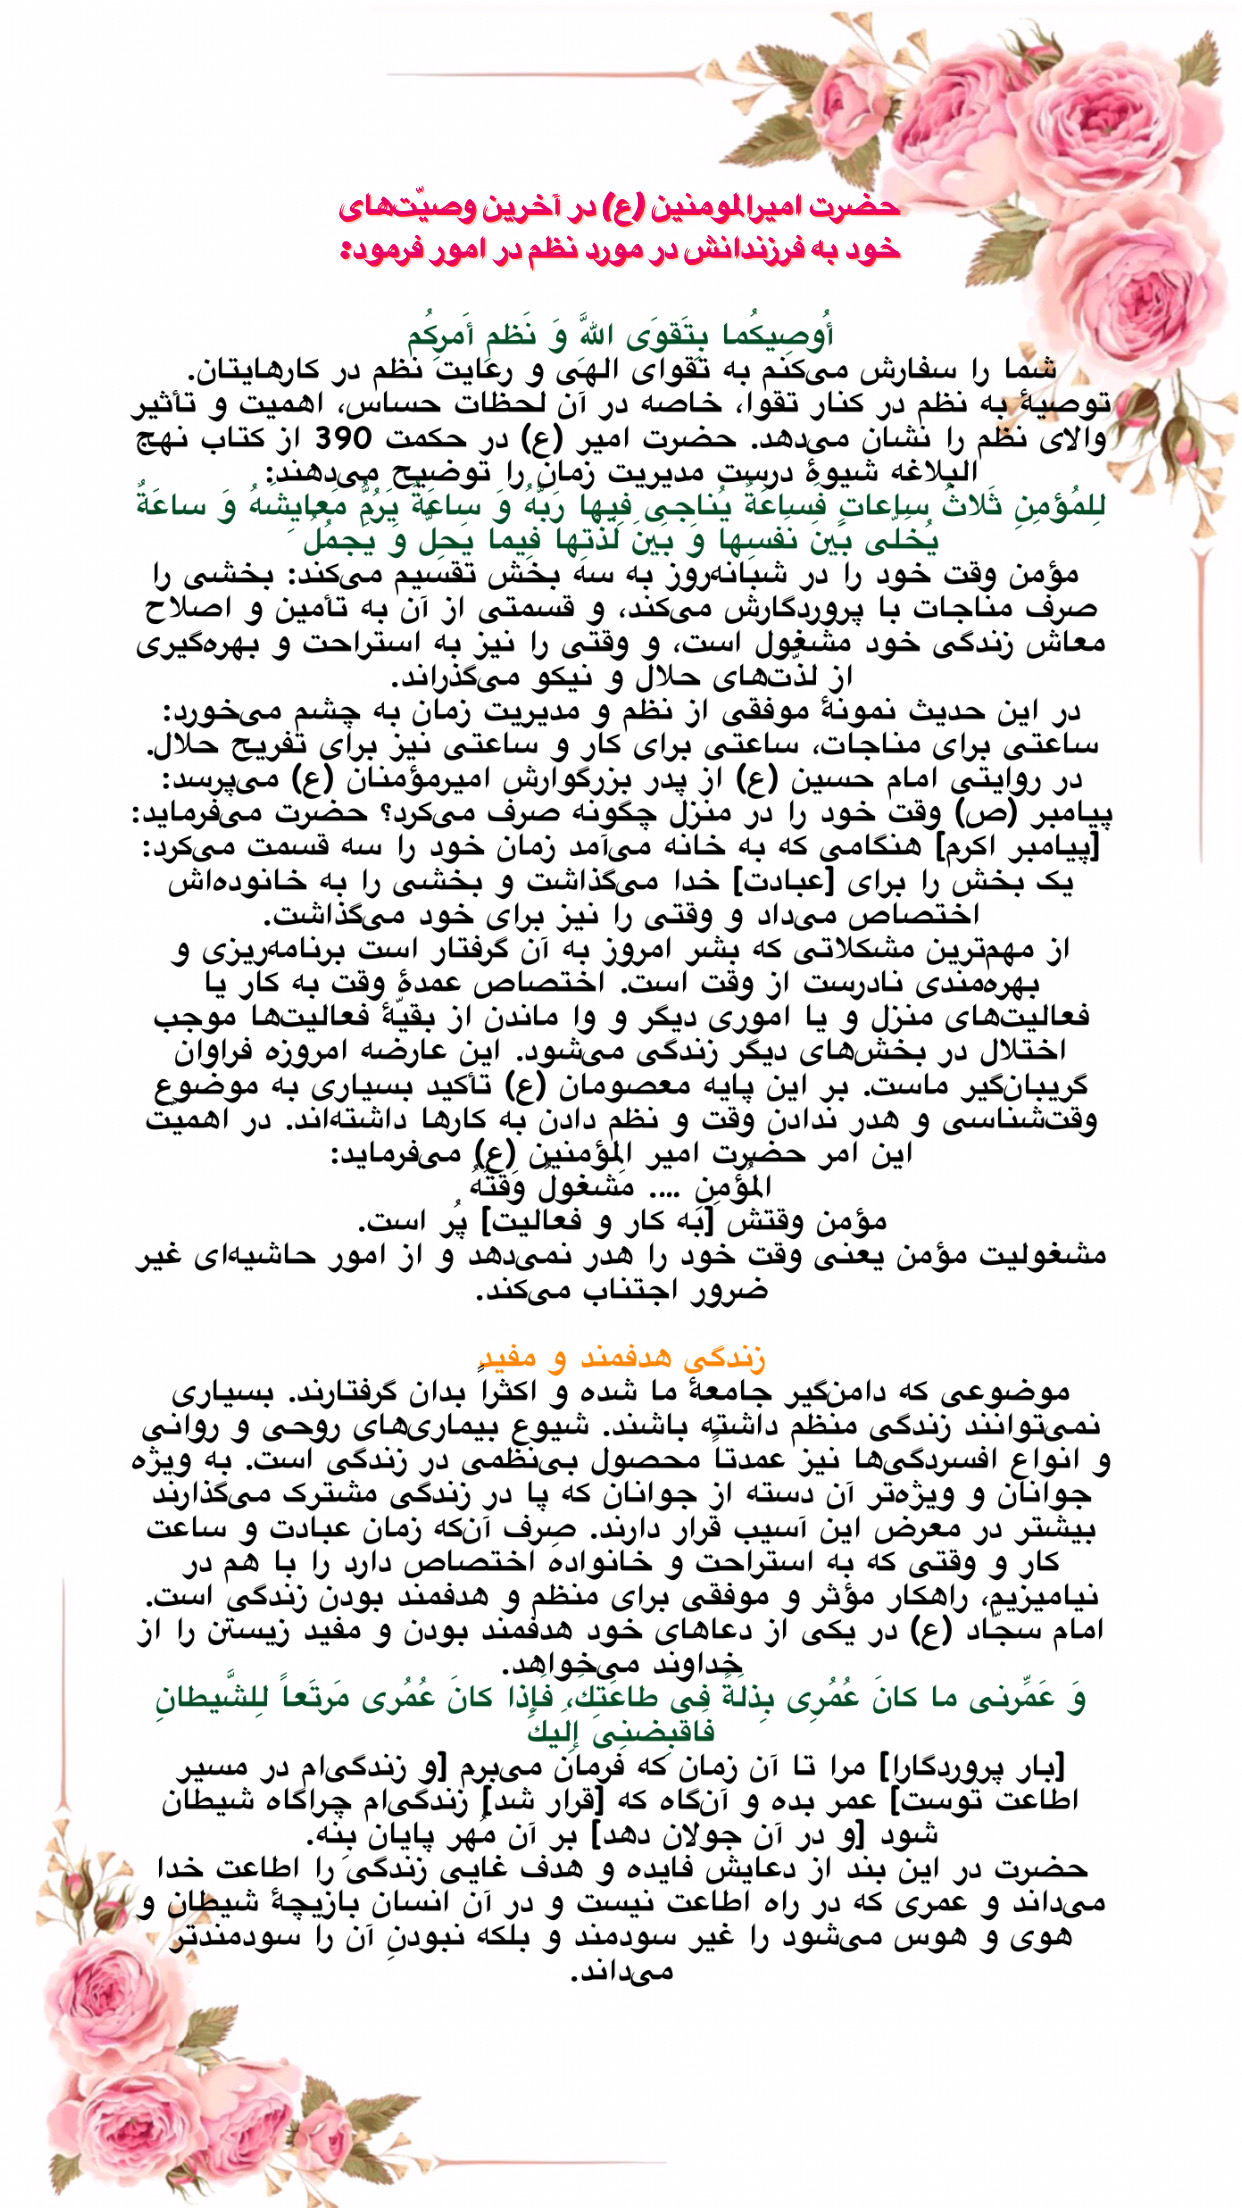 حضرت امیرالمومنین (ع) در آخرین وصیّت‌های
خود به فرزندانش در مورد نظم در امور فرمود:
أُوصِیکُما بِتَقوَی اللهَّ وَ نَظمِ أَمرِکُم
شما را سفارش می‌کنم به تقوای الهی و رعایت نظم در کارهایتان.
توصیهٔ به نظم در کنار تقوا، خاصه در آن لحظات حساس، اهمیت و تأثیر
والای نظم را نشان می‌دهد. حضرت امیر (ع) در حکمت 390 از کتاب نهج
البلاغه شیوهٔ درست مدیریت زمان را توضیح می‌دهند:
لِلمُؤمِنِ ثَلاثُ ساعاتٍ فَساعَةٌ یُناجِی فِیها رَبَّهُ وَ ساعَةٌ یَرُمُّ مَعایِشَهُ وَ ساعَةٌ
یُخَلّی بَینَ نَفسِها وَ بَینَ لَذتِها فِیما یَحِلُّ وَ یَجمُلُ
مؤمن وقت خود را در شبانه‌روز به سه بخش تقسیم می‌کند: بخشی را
صرف مناجات با پروردگارش می‌کند، و قسمتی از آن به تأمین و اصلاح
معاش زندگی خود مشغول است، و وقتی را نیز به استراحت و بهره‌گیری
از لذّت‌های حلال و نیکو می‌گذراند.
در این حدیث نمونهٔ موفقی از نظم و مدیریت زمان به چشم می‌خورد:
ساعتی برای مناجات، ساعتی برای کار و ساعتی نیز برای تفریح حلال.
در روایتی امام حسین (ع) از پدر بزرگوارش امیرمؤمنان (ع) می‌پرسد:
پیامبر (ص) وقت خود را در منزل چگونه صرف می‌کرد؟ حضرت می‌فرماید:
[پیامبر اکرم] هنگامی که به خانه می‌آمد زمان خود را سه قسمت می‌کرد:
یک بخش را برای [عبادت] خدا می‌گذاشت و بخشی را به خانوده‌اش
اختصاص می‌داد و وقتی را نیز برای خود می‌گذاشت.
از مهم‌ترین مشکلاتی که بشر امروز به آن گرفتار است برنامه‌ریزی و
بهره‌مندی نادرست از وقت است. اختصاص عمدهٔ وقت به کار یا
فعالیت‌های منزل و یا اموری دیگر و وا ماندن از بقیّهٔ فعالیت‌ها موجب
اختلال در بخش‌های دیگر زندگی می‌شود. این عارضه امروزه فراوان
گریبان‌گیر ماست. بر این پایه معصومان (ع) تأکید بسیاری به موضوع
وقت‌شناسی و هدر ندادن وقت و نظم دادن به کارها داشته‌اند. در اهمیّت
این امر حضرت امیر المؤمنین (ع) می‌فرماید:
المُؤمِنِ .... مَشغولٌ وَقتُهُ
مؤمن وقتش [به کار و فعالیت] پُر است.
مشغولیت مؤمن یعنی وقت خود را هدر نمی‌دهد و از امور حاشیه‌ای غیر
ضرور اجتناب می‌کند.
زندگی هدفمند و مفید
موضوعی که دامن‌گیر جامعهٔ ما شده و اکثراً بدان گرفتارند. بسیاری
نمی‌توانند زندگی منظم داشته باشند. شیوع بیماری‌های روحی و روانی
و انواع افسردگی‌ها نیز عمدتاً محصول بی‌نظمی در زندگی است. به ویژه
جوانان و ویژه‌تر آن دسته از جوانان که پا در زندگی مشترک می‌گذارند
بیشتر در معرض این آسیب قرار دارند. صِرف آن‌که زمان عبادت و ساعت
کار و وقتی که به استراحت و خانواده اختصاص دارد را با هم در
نیامیزیم، راهکار مؤثر و موفقی برای منظم و هدفمند بودن زندگی است.
امام سجّاد (ع) در یکی از دعاهای خود هدفمند بودن و مفید زیستن را از
خداوند می‌خواهد.
وَ عَمِّرنی ما کانَ عُمُرِی بِذلَةً فِی طاعَتِكَ، فَإِذا کانَ عُمُری مَرتَعاً لِلشَّیطانِ
فَاقبِضنِی إِلَیكَ
[بار پروردگارا] مرا تا آن زمان که فرمان می‌برم [و زندگی‌ام در مسیر
اطاعت توست] عمر بده و آن‌گاه که [قرار شد] زندگی‌ام چراگاه شیطان
شود [و در آن جولان دهد] بر آن مُهر پایان بِنه.
حضرت در این بند از دعایش فایده و هدف غایی زندگی را اطاعت خدا
می‌داند و عمری که در راه اطاعت نیست و در آن انسان بازیچهٔ شیطان و
هوی و هوس می‌شود را غیر سودمند و بلکه نبودنِ آن را سودمندتر
می‌داند.